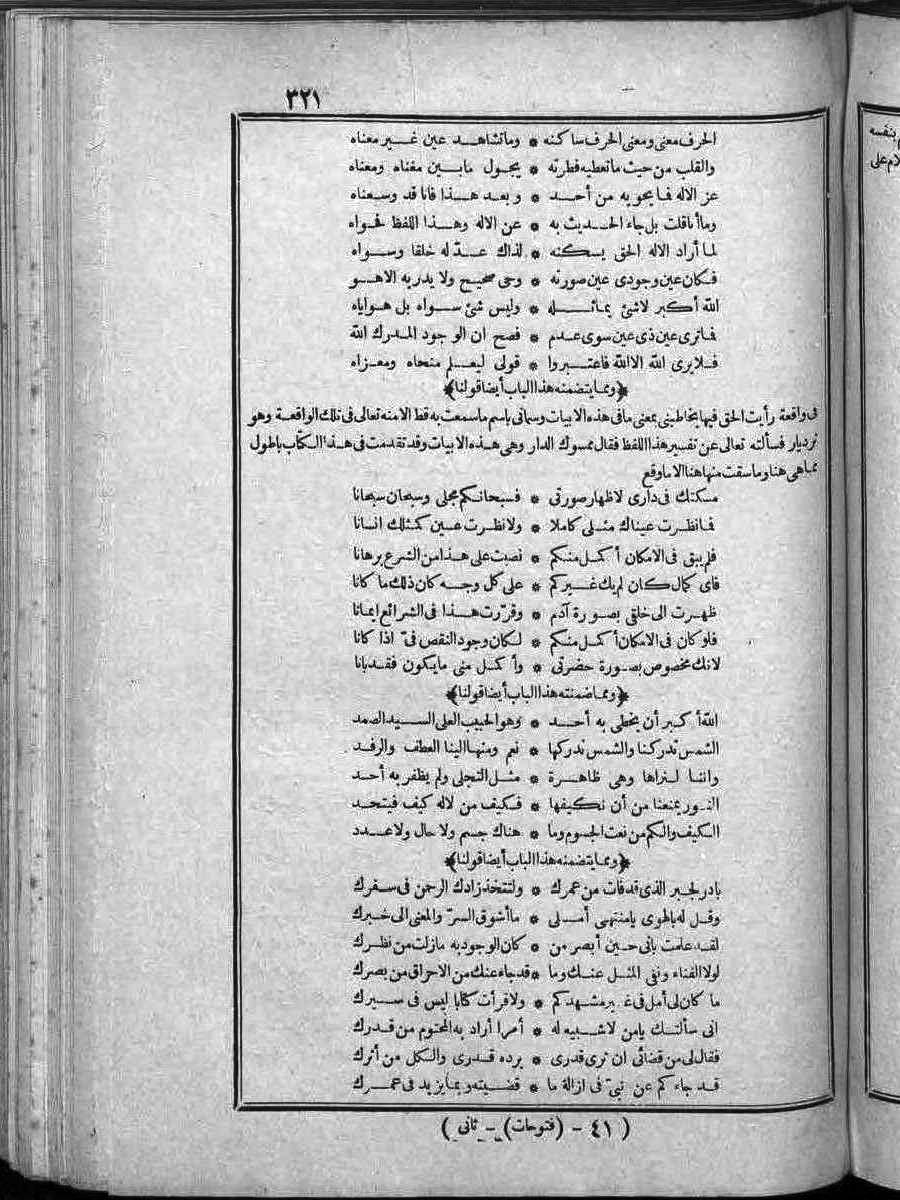 ٣٢١
الحرف معنى ومعنى الحرف ساكنه * وما تشاهد عين غير معناه
والقلب من حيث ما تعطيه فطرته * يجول ما بين مغناه ومعناه
عز الاله فما يحويه من أحد * وبعد هذا فانا قد وسعناه
وما أنا قلت بل جاء الحديث به * عن الاله وهذا اللفظ فحواه
لما أراد الاله الحق يسكنه * لذاك عدّله خلقا وسواه
فكان عين وجودى عين صورته * وحى صحيح ولا يدريه الا هو
الله أكبر لاشئ يماثله * وليس شئ سواه بل هو اياه
فما ترى عين ذى عين سوى عدم * فصح ان الوجود المدرك الله
فلا يرى الله الا الله فاعتبروا * قولى ليعلم منحاه ومعزاه
﴿ومما يتضمنه هذا الباب أيضا قولنا﴾
فى واقعة رأيت الحق فيها يخاطبنى بمعنى ما فى هذه الابيات وسمانى باسم ما سمعت به قط الا منه تعالى فى تلك الواقعة وهو
نرديار فسألته تعالى عن تفسير هذا اللفظ فقال ممسوك الدار وهى هذه الابيات وقد تقدمت فى هذا الكتاب باطول
مما هى هنا وما سقت منها هنا الا ما وقع
مسكتك فى دارى لاظهار صورتى * فسبحانكم مجلى وسبحان سبحانا
فما نظرت عيناك مثلى كاملا * ولا نظرت عين كمثلك انسانا
فلم يبق فى الامكان أكمل منكم * نصبت على هذا من الشرع برهانا
فاى كمال كان لم يك غيركم * على كل وجه كان ذلك ما كانا
ظهرت الى خلقى بصورة آدم * وقرّرت هذا فى الشرائع ايمانا
فلو كان فى الامكان أكمل منكم * لكان وجود النقص فىّ اذا كانا
لانك مخصوص بصورة حضرتى * وأكمل منى ما يكون فقد بانا
﴿ومما ضمنته هذا الباب أيضا قولنا﴾
الله أكبر أن يحظى به أحد * وهو الحبيب العلى السيد الصمد
الشمس تدركنا والشمس ندركها * نعم ومنها الينا العطف والرفد
واننا لنراها وهى ظاهرة * مثل التجلى ولم يظفر به أحد
النور يمنعنا من أن نكيفها * فكيف من لاله كيف فيتحد
الكيف والكم من نعت الجسوم وما * هناك جسم ولا حال ولا عدد
﴿ومما يتضمنه هذا الباب أيضا قولنا﴾
بادر لجبر الذى قد فات من عمرك * ولتتخذ زادك الرحمن فى سفرك
وقل له بالهوى يا منتهى أملى * ما أشوق السرّ والمعنى الى خبرك
لقد علمت بانى حين أبصر من * كان الوجود به ما زلت من نظرك
لولا الفناء ونفى المثل عنك وما * قد جاء عنك من الاحراق من بصرك
ما كان لى أمل فى غير مشهدكم * ولا قرأت كتابا ليس فى سيرك
انى سألتك يا من لا شبيه له * أمرا أراد به المحتوم من قدرك
فقال لى من قضائى ان ترى قدرى * يرده قدرى والكل من أثرك
قد جاءكم عن نبىّ فى ازالة ما * قضيته وبما يزيد فى عمرك
( ٤١ - (فتوحات) - ثانى )